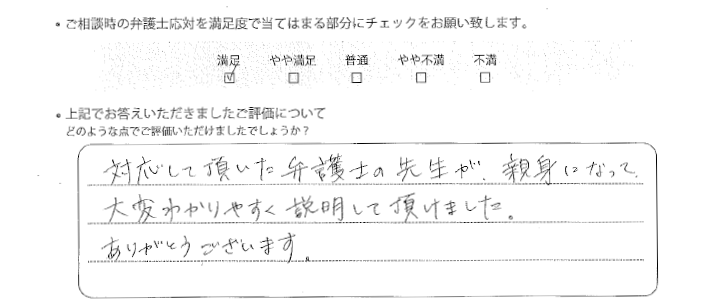 ・ご相談時の弁護士応対を満足度で当てはまる部分にチェックをお願い致します。
満足 やや満足 普通 やや不満 不満
☑ □ □ □ □
・上記でお答えいただきましたご評価について
どのような点でご評価いただけましたでしょうか？
対応して頂いた弁護士の先生が、親身になって、
大変わかりやすく説明して頂けました。
ありがとうございます。